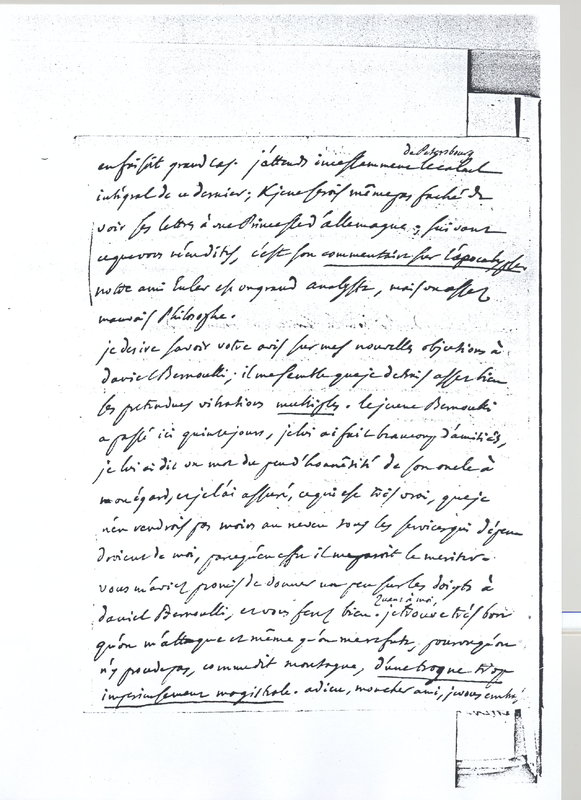 en faisoit grand cas. j'attends incessamment le calcul
de Petersbourg
intégral de ce dernier; & je ne serois même pas faché de
voir ses lettres à une Princesse d'allemagne; suivant
ce que vous m'en dites, c'est son commentaire sur l'apocalypse
notre ami Euler est un grand analyste, mais un assez
mauvais Philosophe.
je desire savoir votre avis sur mes nouvelles objections à
daniel Bernoulli; il me semble que je detruis assez bien
ses pretendues vibrations multiples. le jeune Bernoulli
a passé ici quinze jours, je lui ai fait beaucoup d'amitiés,
je lui ai dit un mot du peu d'honnêteté de son oncle à
mon égard, et je l'ai assuré, ce qui est très vrai, que je
n'en rendrois pas moins au neveu tous les services qui dépen
droient de moi, parcequ'en effet il me paroit le meriter.
vous m'aviez promis de donner un peu sur les doigts à
daniel Bernoulli, et vous ferez bien. je trouve très bon
Quant à moi,
qu'on m'attaque et même qu'on me refute, pourvu qu'on
n'y procede pas, comme dit montagne, d'une trogne trop
imperieusement magistrale. adieu, mon cher ami, je vous embr